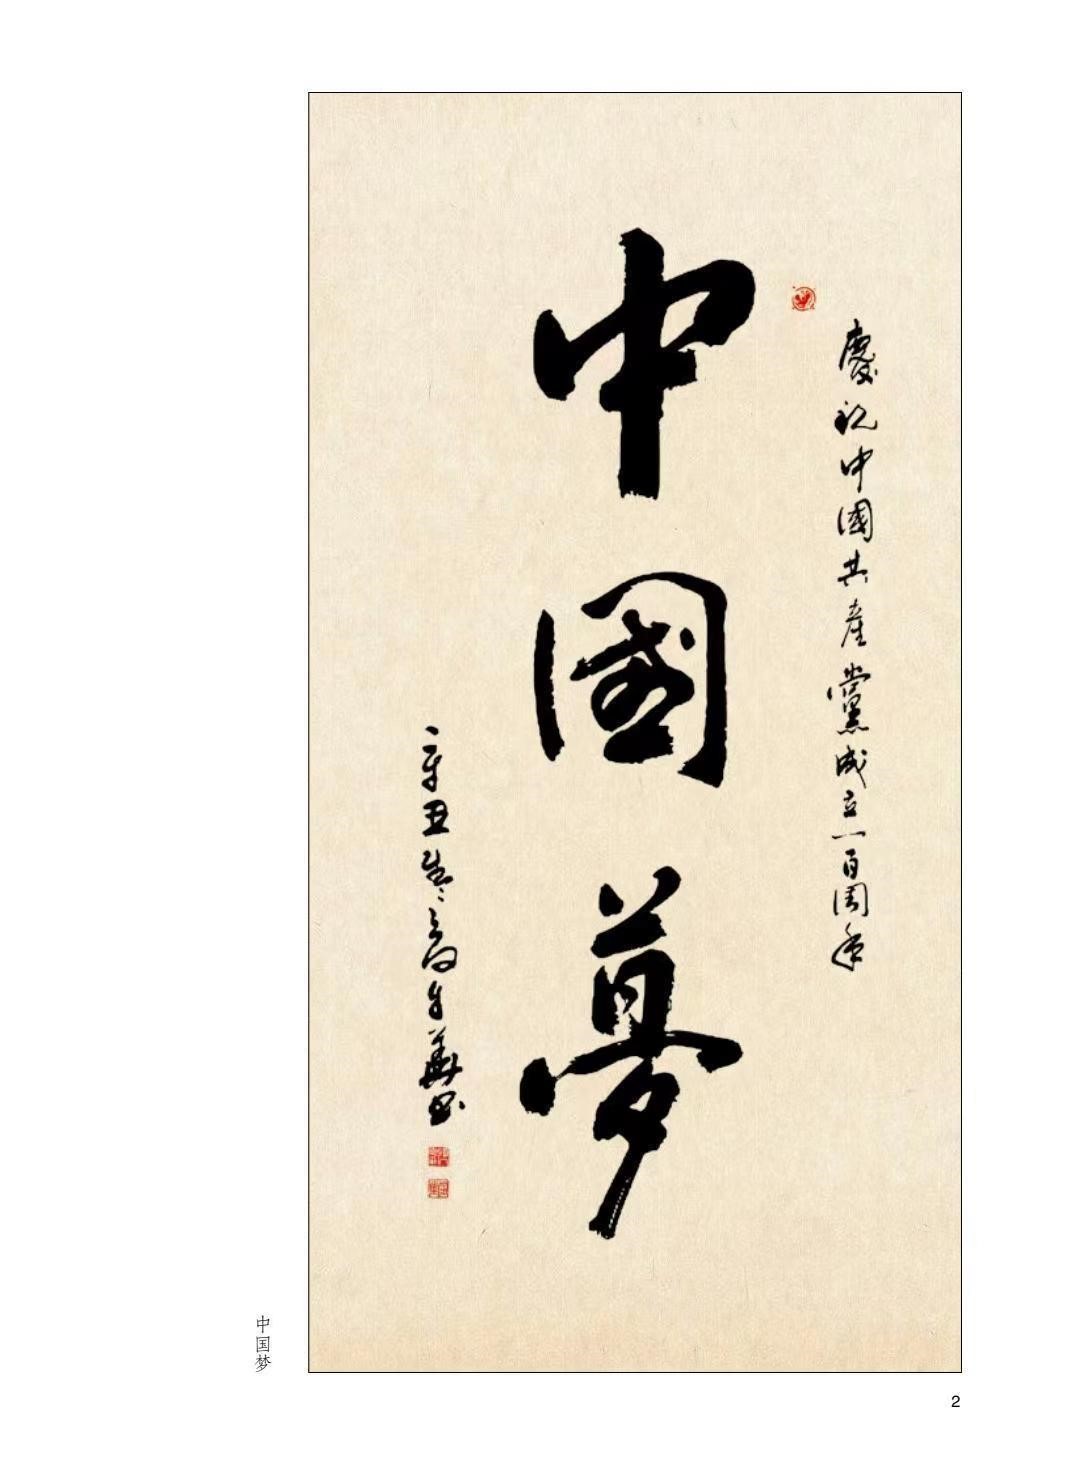 慶祝中國共產黨成立一百周年
中國夢
辛丑
華書
中国梦
2